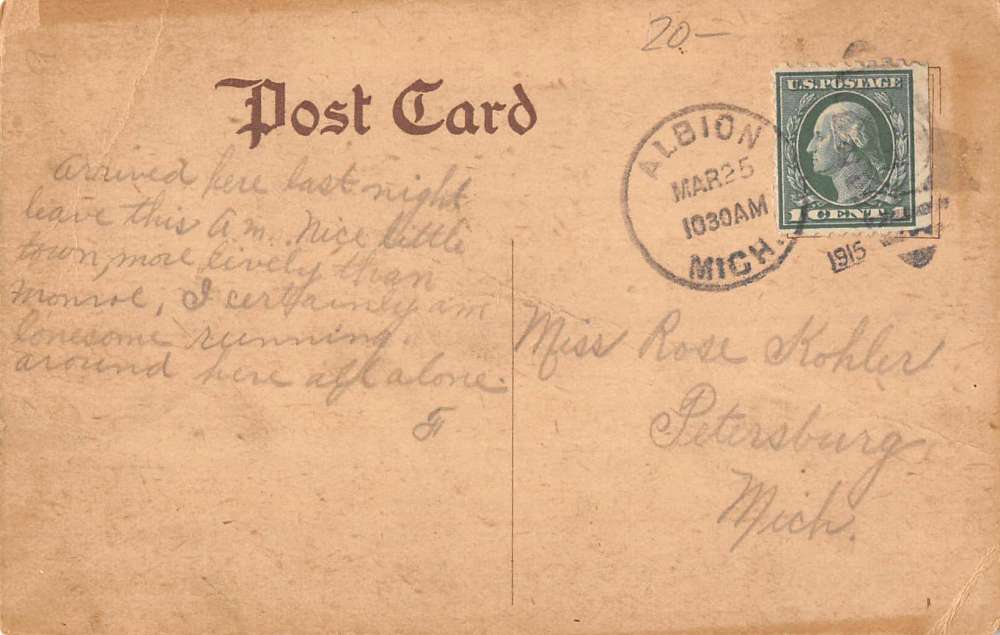 20-
Post Card
U.S. POSTAGE
1 CENT 1
ALBION
MAR 25
1030 AM
MICH.
1915
arrived here last night
leave this a m. Nice little
town, more lively than
Monroe, I certainly am
lonesome running
around here all alone.
F
Miss Rose Kohler
Petersburg,
Mich.